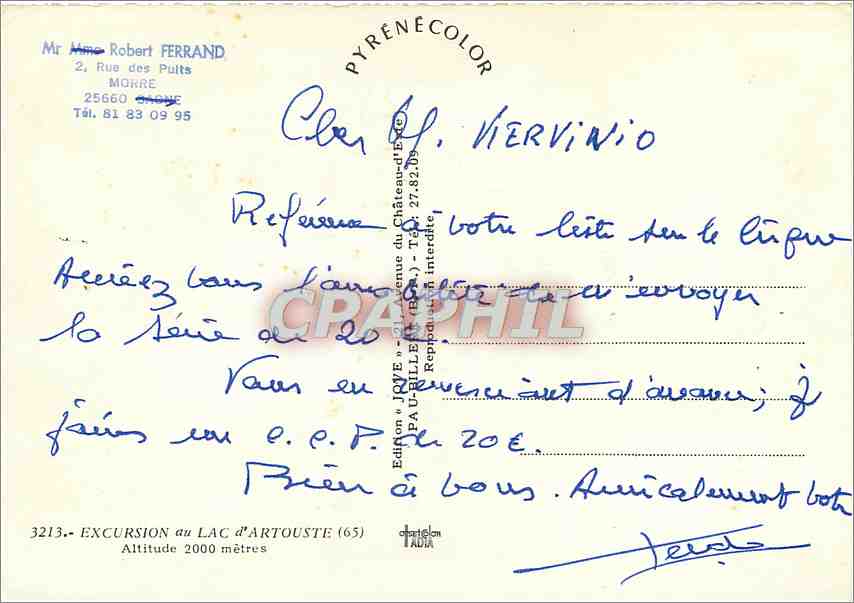 PYRÉNÉCOLOR
Mr Mme Robert FERRAND
2, Rue des Puits
MORRE
25660 SAONE
Tél. 81 83 09 95
Cher M. VIERVINIO
Référence à votre liste sur le cirque
Auriez vous l'amabilité de m'envoyer
la série de 20 €.
Vous en remerciant d'avance, je
joins un c.c.P. de 20 €.
Bien à vous. Amicalement votre
CPAPHIL
Edition « JOVE » - 21, Avenue du Château-d'Este
PAU-BILLERE (B.-P.) - Tél. : 27.82.09
Reproduction interdite
3213.- EXCURSION au LAC d'ARTOUSTE (65)
Altitude 2000 mètres